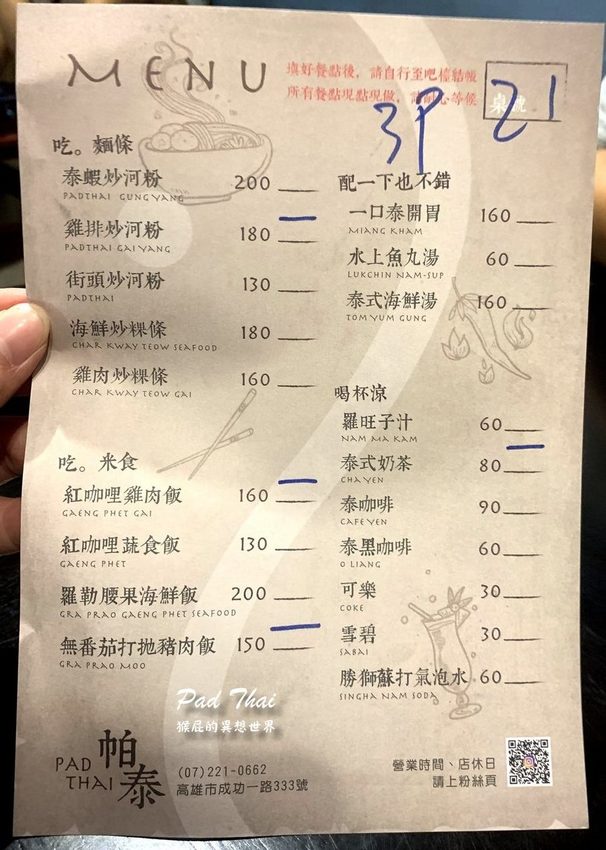 MENU
填好餐點後，請自行至吧檯結帳
所有餐點現點現做，請耐心等候
桌號
21
3P
吃。麵條
泰蝦炒河粉 200
PADTHAI GUNG YANG
雞排炒河粉 180
PADTHAI GAI YANG
街頭炒河粉 130
PADTHAI
海鮮炒粿條 180
CHAR KWAY TEOW SEAFOOD
雞肉炒粿條 160
CHAR KWAY TEOW GAI
吃。米食
紅咖哩雞肉飯 160
GAENG PHET GAI
紅咖哩蔬食飯 130
GAENG PHET
羅勒腰果海鮮飯 200
GRA PRAO GAENG PHET SEAFOOD
無番茄打拋豬肉飯 150
GRA PRAO MOO
配一下也不錯
一口泰開胃 160
MIANG KHAM
水上魚丸湯 60
LUKCHIN NAM-SUP
泰式海鮮湯 160
TOM YUM GUNG
喝杯涼
羅旺子汁 60
NAM MA KAM
泰式奶茶 80
CHA YEN
泰咖啡 90
CAFE YEN
泰黑咖啡 60
O LIANG
可樂 30
COKE
雪碧 30
SABAI
勝獅蘇打氣泡水 60
SINGHA NAM SODA
Pad Thai
猴屁的異想世界
PAD THAI
帕泰
(07)221-0662
高雄市成功一路333號
營業時間、店休日
請上粉絲頁